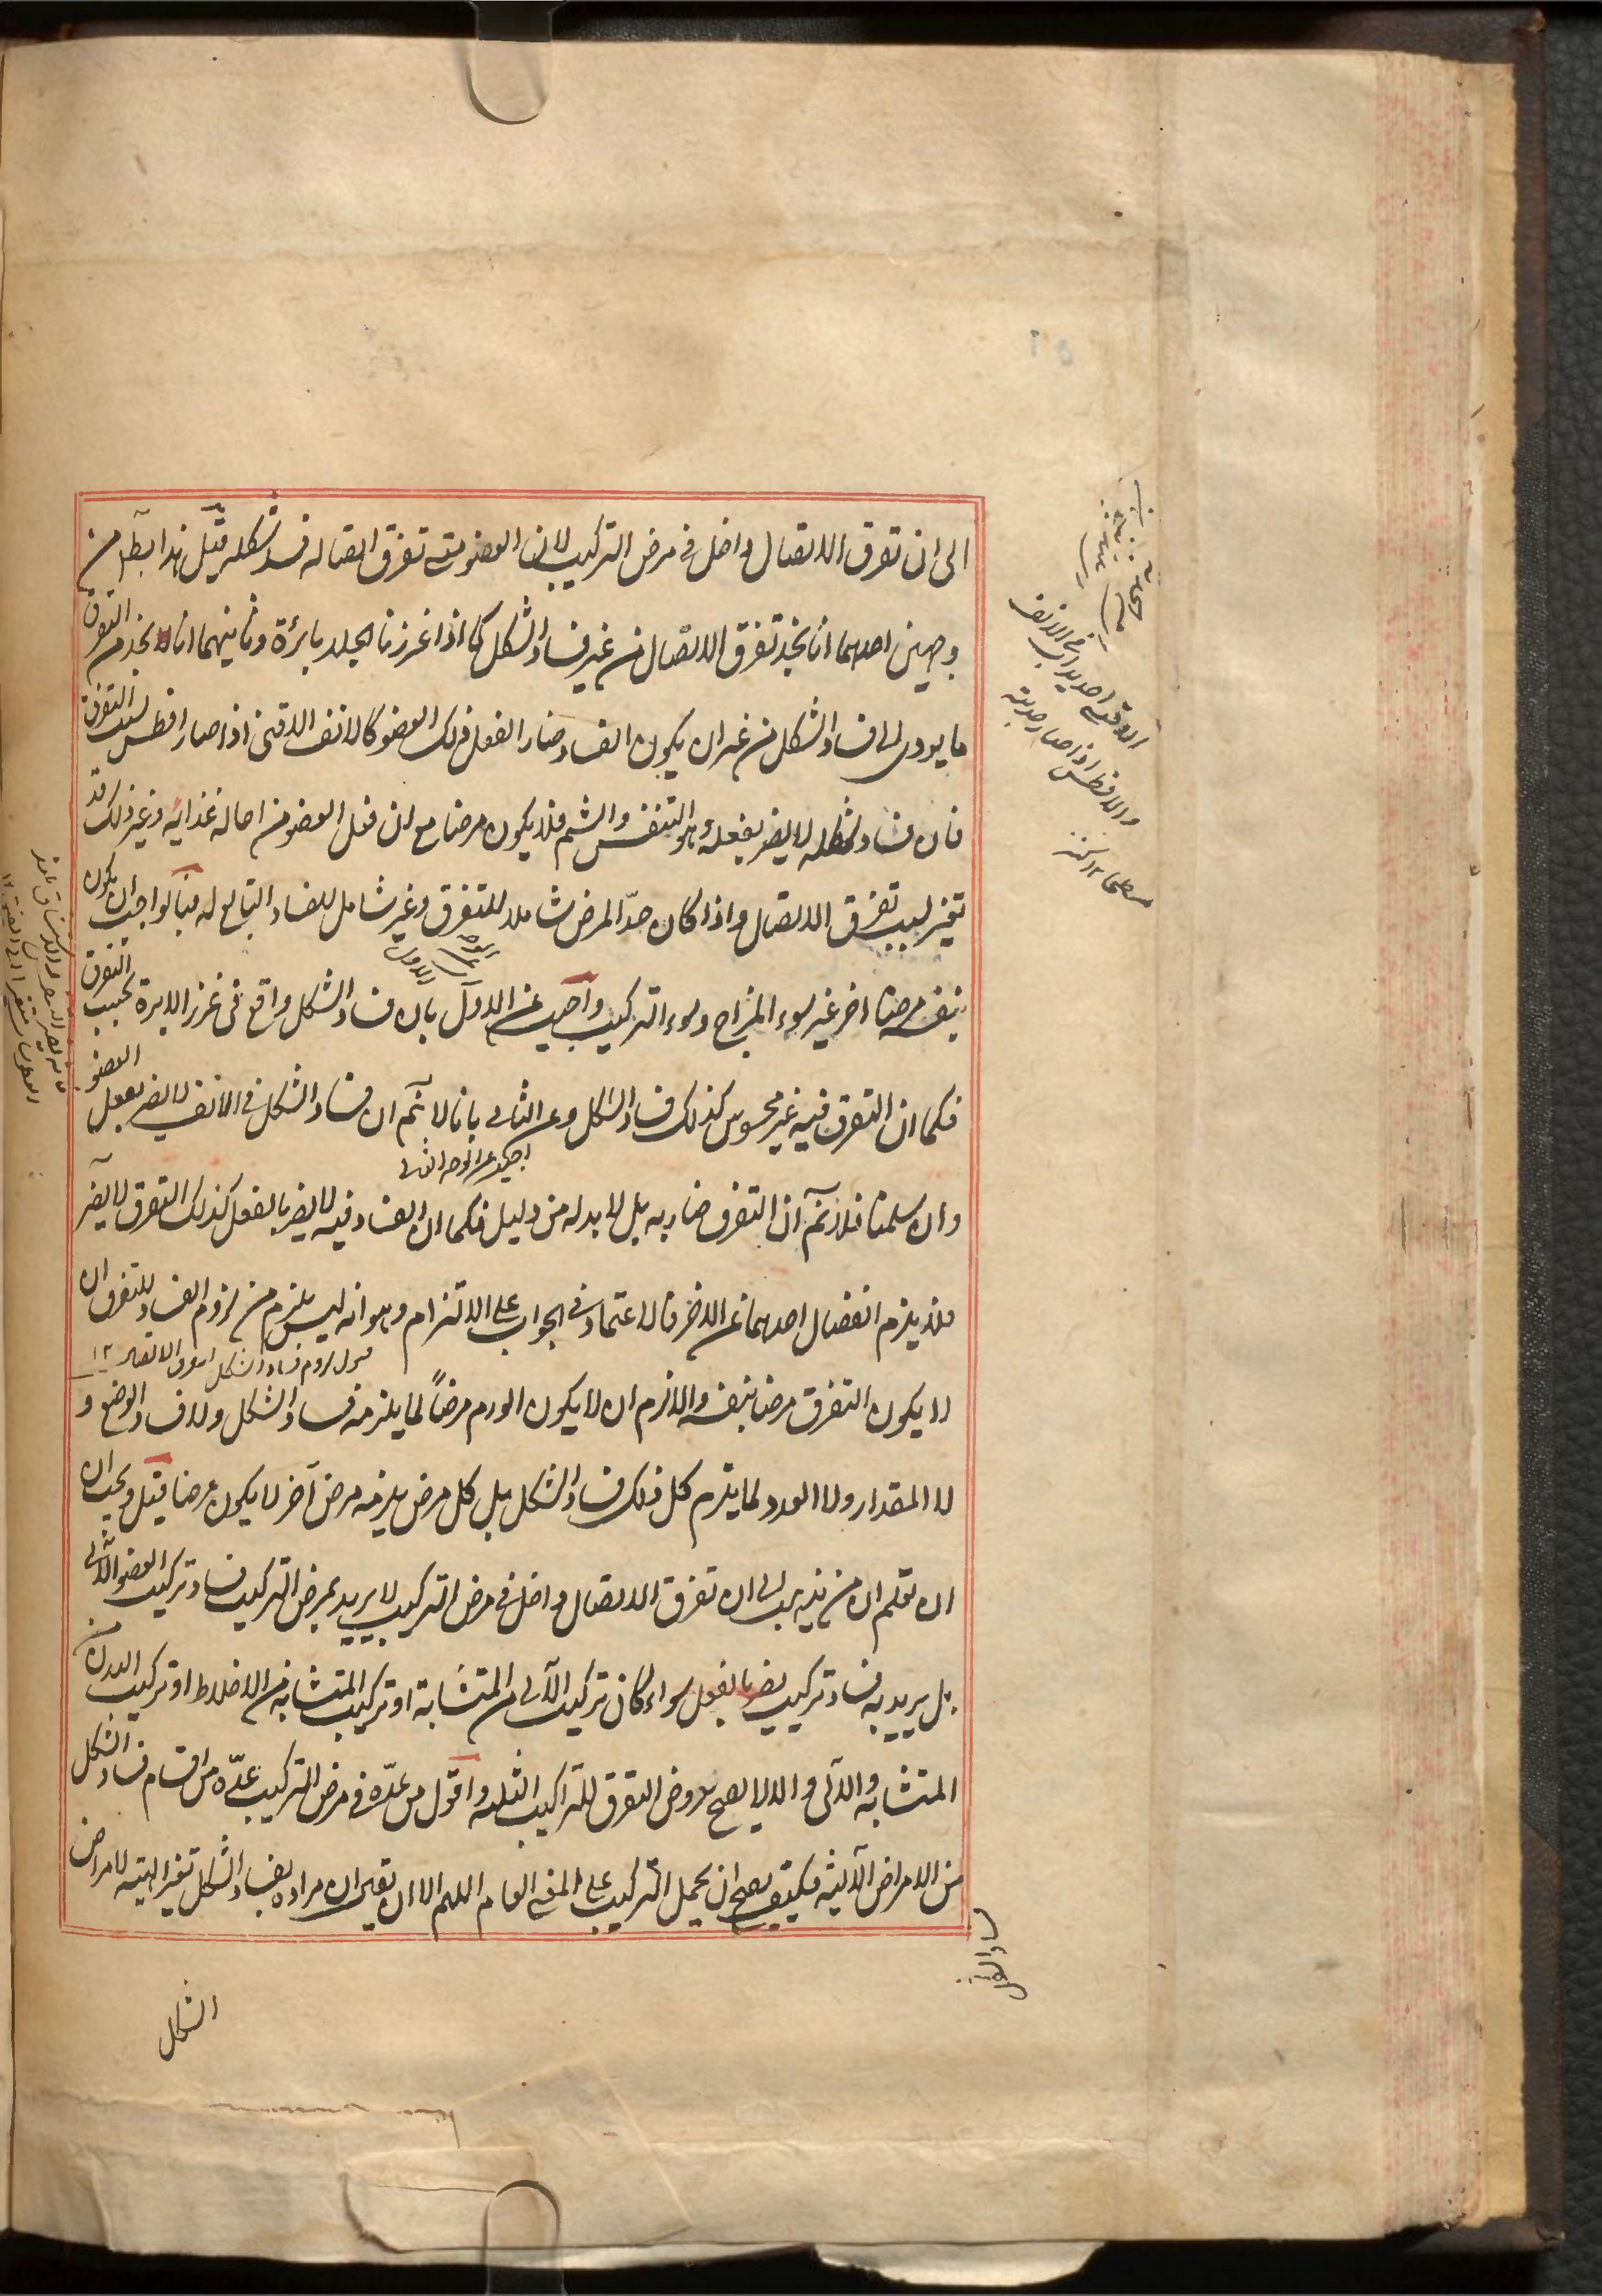 الى ان تفرق الاتصال داخل فى مرض التركيب لان العضو متى تفرق اتصاله فسد شكله قيل هذا باطل من
وجهين احدهما انا نجد تفرق الاتصال من غير فساد الشكل كما اذا غرزنا الجلد بابرة وثانيهما انا نجد من التفرق
ما يودى الى فساد الشكل من غير ان يكون الفساد ضار الفعل ذلك العضو كالانف الاقنى اذا صار افطس بسبب التفرق
فان فساد شكله لا يضر بفعله وهو التنفس والشم فلا يكون مرضا مع ان فعل العضو من احالة غذائه وغير ذلك قد
تغير بسبب تفرق الاتصال واذا كان حدّ المرض شاملا للتفرق وغير شامل للفساد التابع له فبالواجب ان يكون
بنفسه مرضا اخر غير سوء المزاج وسوء التركيب واجيب عن الاول بان فساد الشكل واقع فى غرز الابرة بحسب التفرق
فكما ان التفرق فيه غير محسوس كذلك فساد الشكل وعن الثانى بانا لا نم ان فساد الشكل فى الانف لا يضر بفعل العضو
وان سلمنا فلا نم ان التفرق ضار به بل لا بد له من دليل فكما ان الفساد فيه لا يضر بالفعل كذلك التفرق لا يضر
فلا يلزم انفصال احدهما عن الاخر فالاعتماد فى الجواب على الالتزام وهو انه ليس يلزم من لزوم الفساد للتفرق ان
لا يكون التفرق مرضا بنفسه والا لزم ان لا يكون الورم مرضاً لما يلزمه فساد الشكل ولا فساد الوضع و
لا المقدار ولا العدد لما يلزم كل ذلك فساد الشكل بل كل مرض يلزمه مرض آخر لا يكون مرضا قيل ويجب ان
ان تعلم ان من يذهب الى ان تفرق الاتصال داخل فى مرض التركيب لا يريد بمرض التركيب فساد تركيب العضو الآلى
بل يريد به فساد تركيب يضر بالفعل سواء كان تركيب الآلى من المتشابهة او تركيب المتشابه من الاخلاط او تركيب البدن من
المتشابه والآلى والا لا يصح عروض التفرق للتراكيب الثلثة واقول من عدّه فى مرض التركيب عدّه من اقسام فساد الشكل
من الامراض الآلية فكيف يصح ان يحمل التركيب على المعنى العام اللهم الا ان يقول ان مراده بفساد الشكل تغير الهيئة لا مراض
الشكل